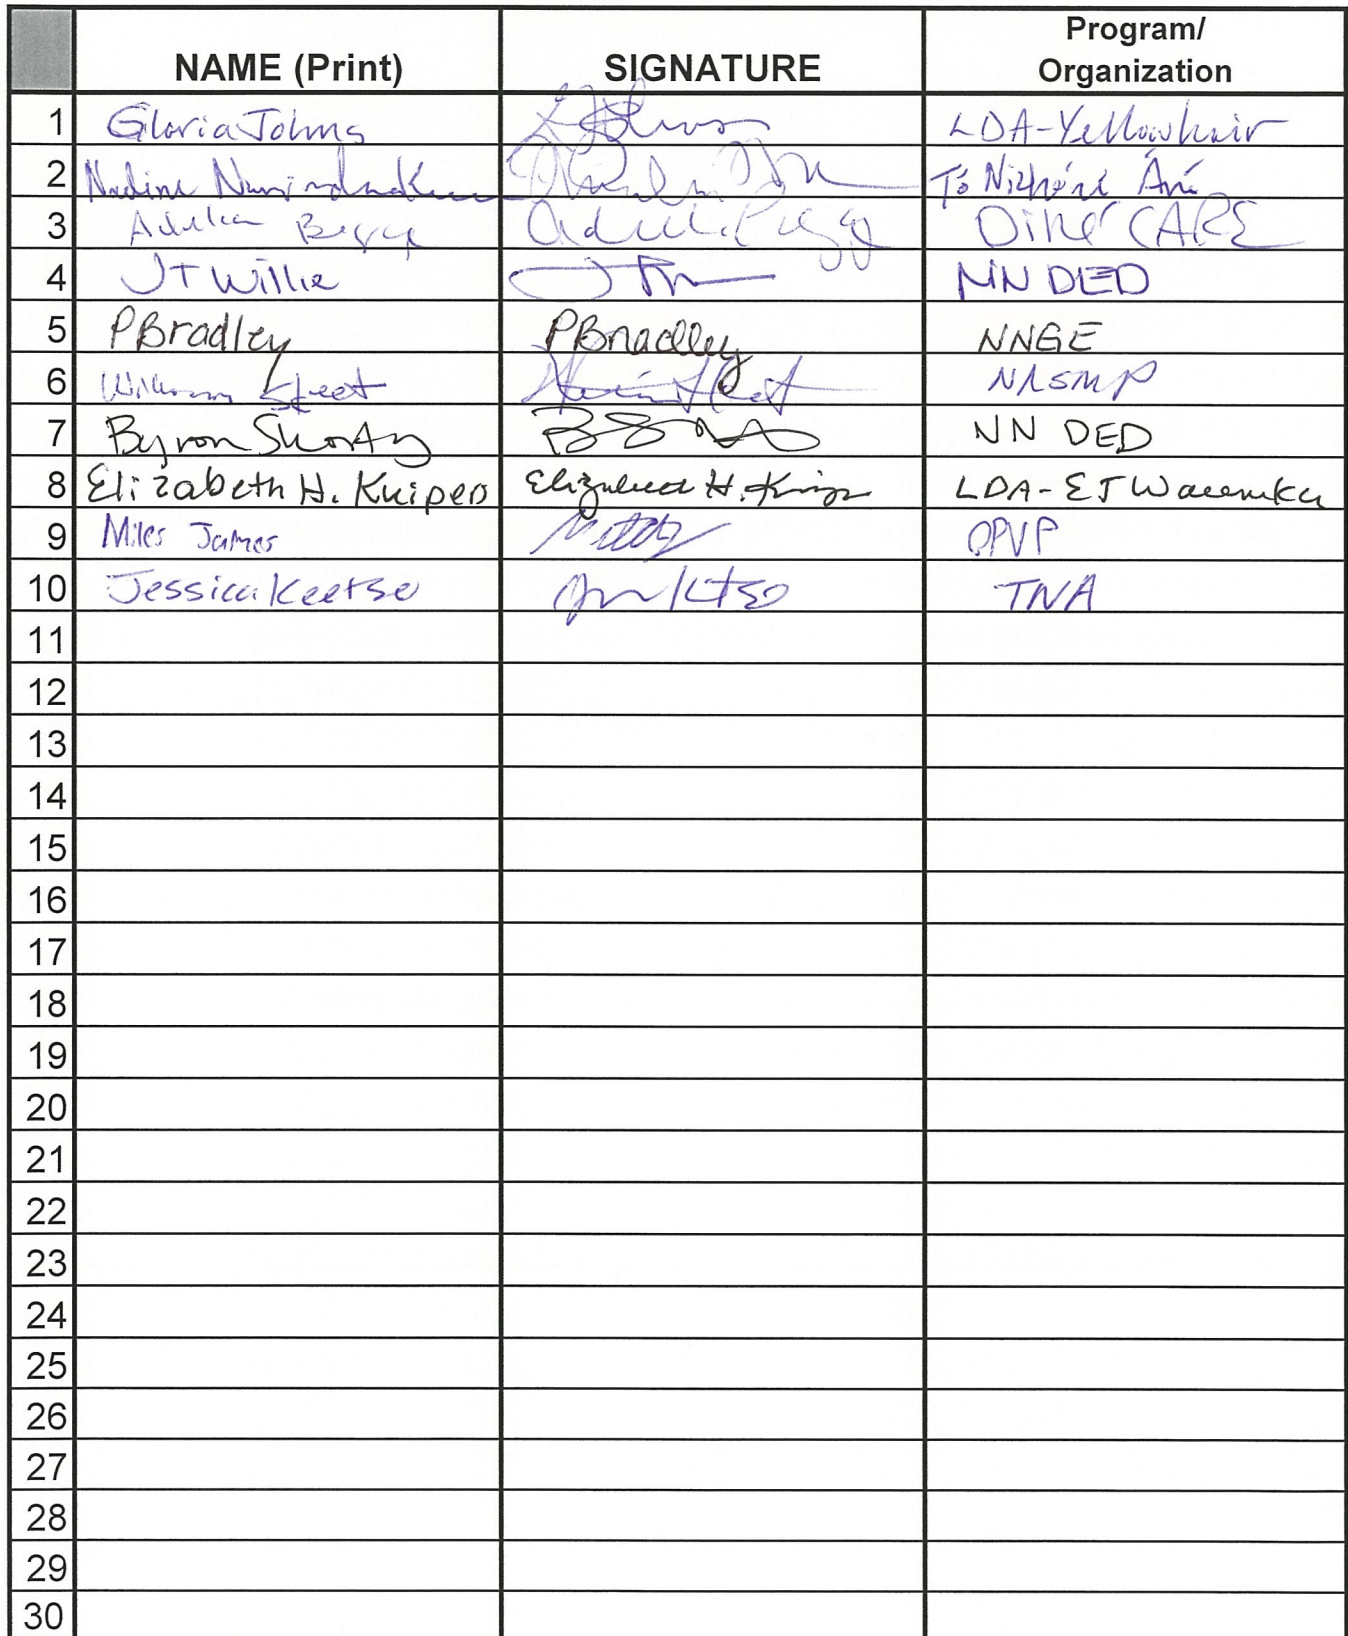 NAME (Print) SIGNATURE Program/
Organization
1 Gloria Johns LDA-Yellowhair
2 Nadine Tó Nizhóní Ání
3 Begay Diné CARE
4 JT Willie NN DED
5 PBradley PBradley NNGE
6 William Skeet
7 Byron Shorty NN DED
8 Elizabeth H. Kuiper Elizabeth H. LDA-EJ
9 Miles James OPVP
10 Jessica Keetso TNA
11
12
13
14
15
16
17
18
19
20
21
22
23
24
25
26
27
28
29
30